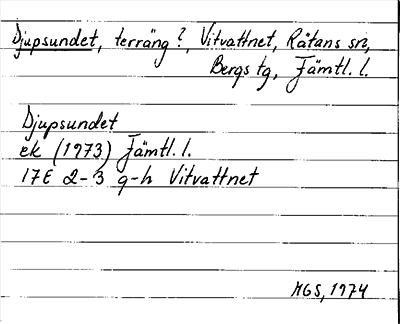 Djupsundet, terräng?, Vitvattnet, Råtans sn,
Bergs tg, Jämtl. l.
Djupsundet
ek (1973) Jämtl. l.
17E 2-3 g-h Vitvattnet
MGS, 1974